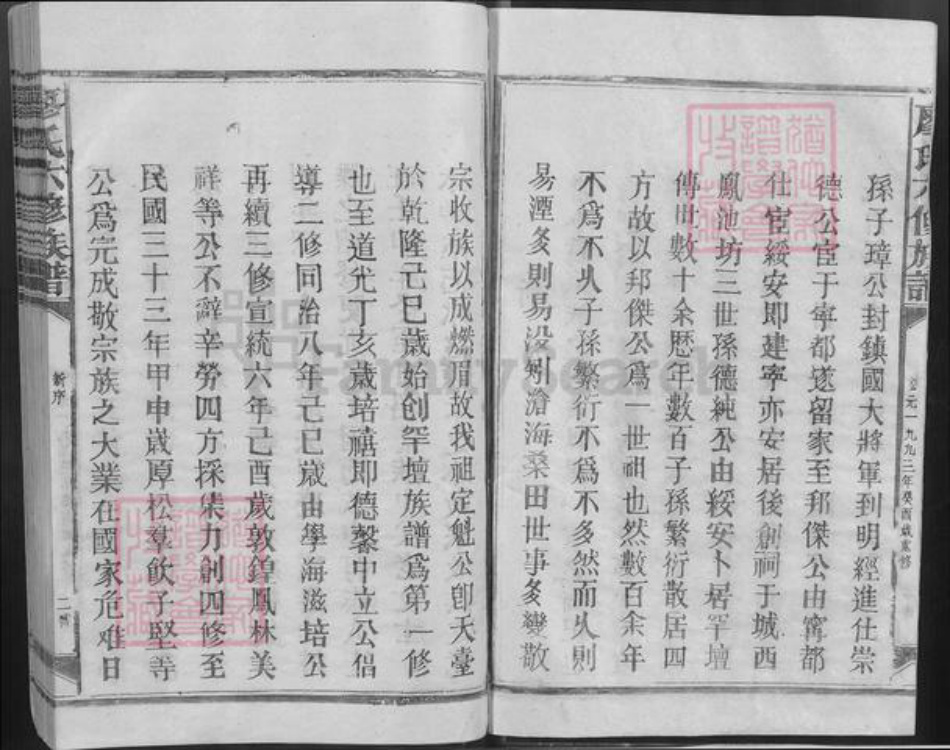 孫子璋公封鎮國大將軍到明經進仕崇
德公宦于寧都遂留家至邦傑公由寗都
仕宦綏安即建寧亦安居後創祠于城西
鳳池坊三世孫德純公由綏安卜居罕壇
傳世數十余歷年數百子孫繁衍散居四
方故以邦傑公爲一世祖也然數百余年
不爲不久子孫繁衍不爲不多然而久則
易湮多則易没矧滄海桑田世事多變敬
宗收族以成燃眉故我祖定魁公卽天臺
於乾隆己巳歲始创罕壇族譜爲第一修
也至道光丁亥歲培禧即德馨中立公倡
導二修同治八年己巳歲由學海滋培公
再續三修宣統六年己酉歲敦鍠鳳林美
祥等公不辭辛勞四方採集力創四修至
民國三十三年甲申歲厚松羣飲子堅等
公爲完成敬宗族之大業在國家危难日
廖氏六修族譜
新序
二
廖氏六修族譜
公元一九九三年癸酉歲重修
FamilySearch